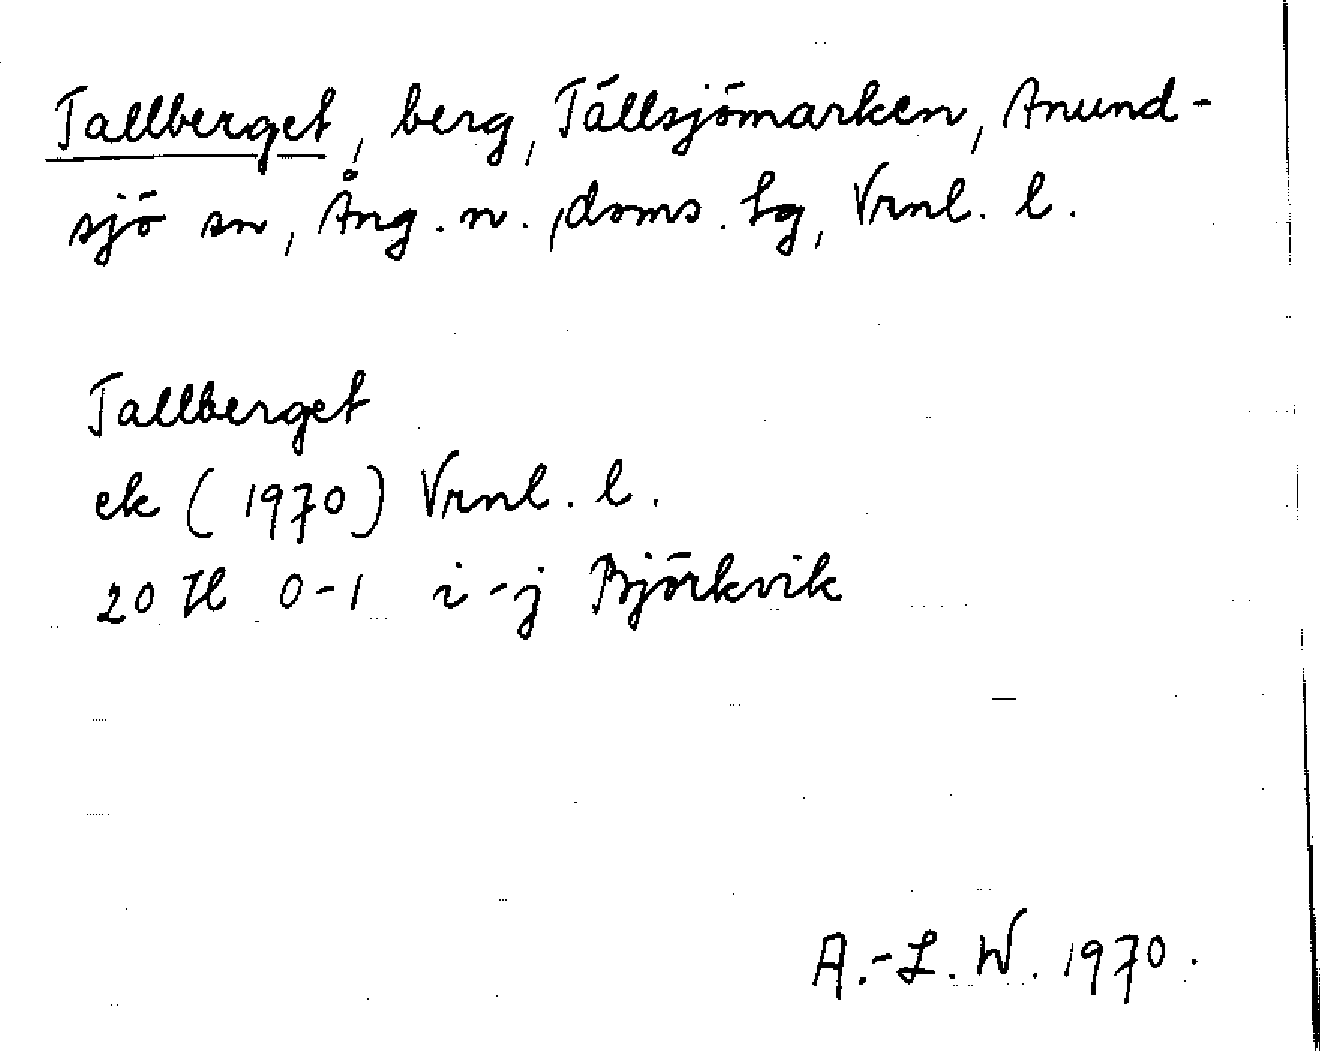 Tallberget, berg, Tällsjömarken, Anund-
sjö sn, Ång. n., doms. hg, Vrnl. l.
Tallberget
ek (1970) Vrnl. l.
20 H 0-1 i-j Björkvik
A.-L. W. 1970.